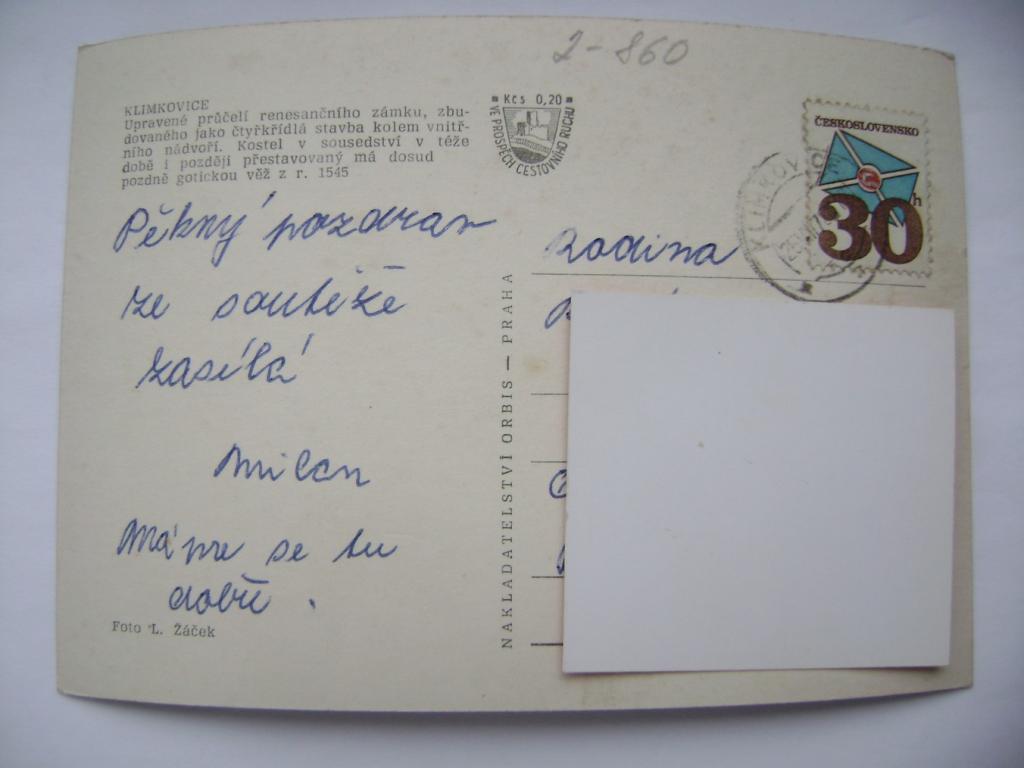 2-860
KLIMKOVICE
Upravené průčelí renesančního zámku, zbu-
dovaného jako čtyřkřídlá stavba kolem vnitř-
ního nádvoří. Kostel v sousedství v téže
době i později přestavovaný má dosud
pozdně gotickou věž z r. 1545
Kčs 0,20
VE PROSPĚCH CESTOVNÍHO RUCHU
ČESKOSLOVENSKO
30h
KLIMKOV
Pěkný pozdrav
ze soutěže
zasílá
Milan
Máme se tu
dobře.
Foto L. Žáček
NAKLADATELSTVÍ ORBIS — PRAHA
Rodina